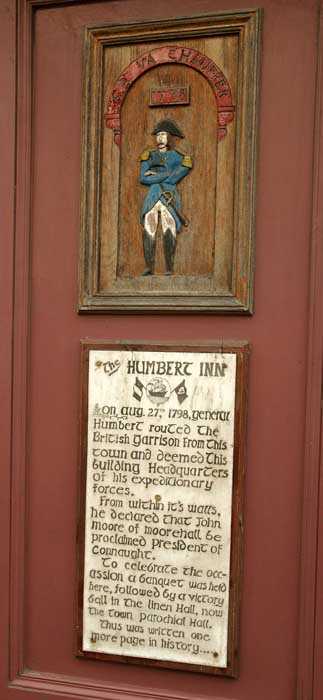 1798
The HUMBERT INN
On Aug. 27, 1798, General
Humbert routed the
British Garrison from this
town and deemed this
building Headquarters
of his expeditionary
forces.
From within it's walls,
he declared that John
Moore of Moorehall be
proclaimed president of
Connaught.
To celebrate the occ-
assion a banquet was held
here, followed by a victory
ball in the Linen Hall, now
the town parochial Hall.
Thus was written one
more page in history....